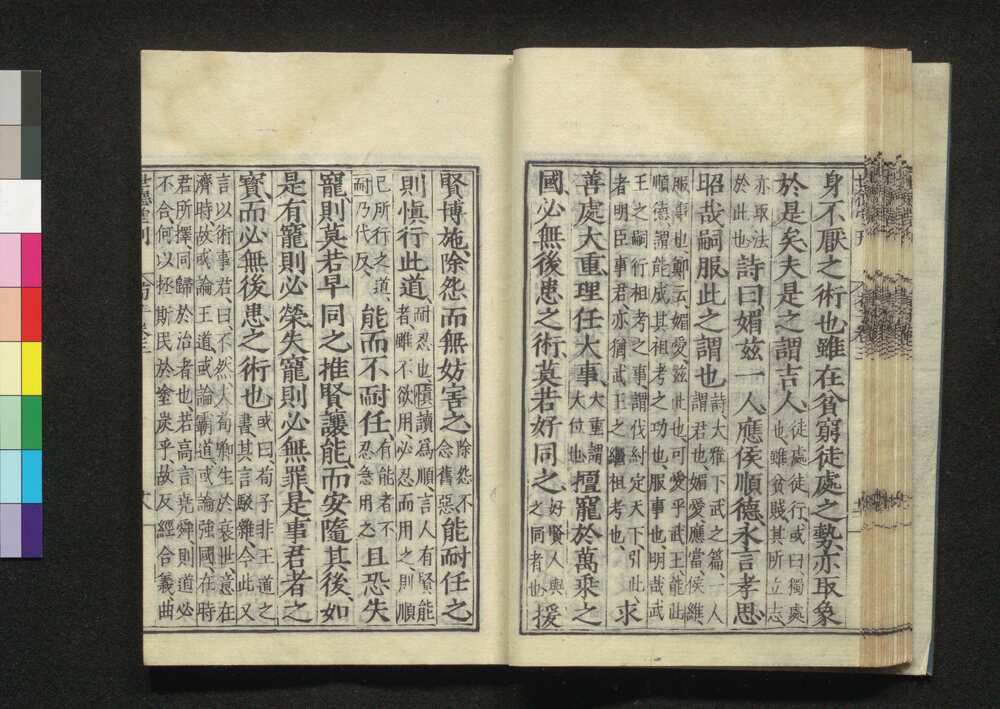 身不厭之術也雖在貧窮徒處之勢亦取象
於是矣夫是之謂吉人
徒處徒行或曰獨處
也雖貧賤其所立志
亦取法
於此也
詩曰媚茲一人應侯順德永言孝思
昭哉嗣服此之謂也
詩大雅下武之篇一人
謂君也媚愛應當侯維
服事也鄭云媚愛茲此也可愛乎武王能此
順德謂能成其祖考之功也服事也明哉武
王之嗣行祖考之事謂伐紂定天下引此
者明臣事君亦猶武王之繼祖考也
求
善處大重理任大事
大重謂
大位也
擅寵於萬乘之
國必無後患之術莫若好同之
好賢人與
之同者也
援
賢博施除怨而無妨害之
除怨不
念舊惡
能耐任之
則慎行此道
耐忍也慎讀爲順言人有賢能
者雖不欲用必忍而用之則順
已所行之道
耐乃代反
能而不耐任
有能者不
忍急用之
且恐失
寵則莫若早同之推賢讓能而安隨其後如
是有寵則必榮失寵則必無罪是事君者之
寶而必無後患之術也
或曰荀子非王道之
書其言駁雜今此又
言以術事君曰不然夫荀卿生於衰世意在
濟時故或論王道或論霸道或論強國在時
君所擇同歸於治者也若高言堯舜則道必
不合何以拯斯民於塗炭乎故反經合義曲
世德堂刊